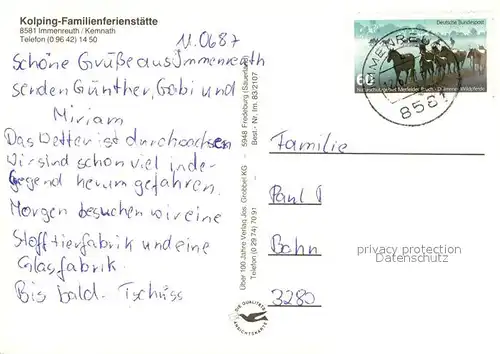 Kolping-Familienferienstätte
8581 Immenreuth / Kemnath
Telefon (0 96 42) 14 50
11.06 87
Schöne Grüße aus Immenreuth
senden Günther, Gabi und
Miriam
Das Wetter ist durchwachsen
wir sind schon viel in de
Gegend herum gefahren.
Morgen besuchen wir eine
Stofftierfabrik und eine
Glasfabrik.
Bis bald. Tschüss
Über 100 Jahre Verlag Jos. Grobbel KG - 5948 Fredeburg (Sauerland)
Telefon (0 29 74) 70 91 Best.-Nr. Im. 83/2107
DIE QUALITÄTS
ANSICHTSKARTE
Deutsche Bundespost
60
Naturschutzgebiet Merfelder Bruch · Dülmener Wildpferde
8581
Familie
Paul
Bahn
3280
privacy protection
Datenschutz